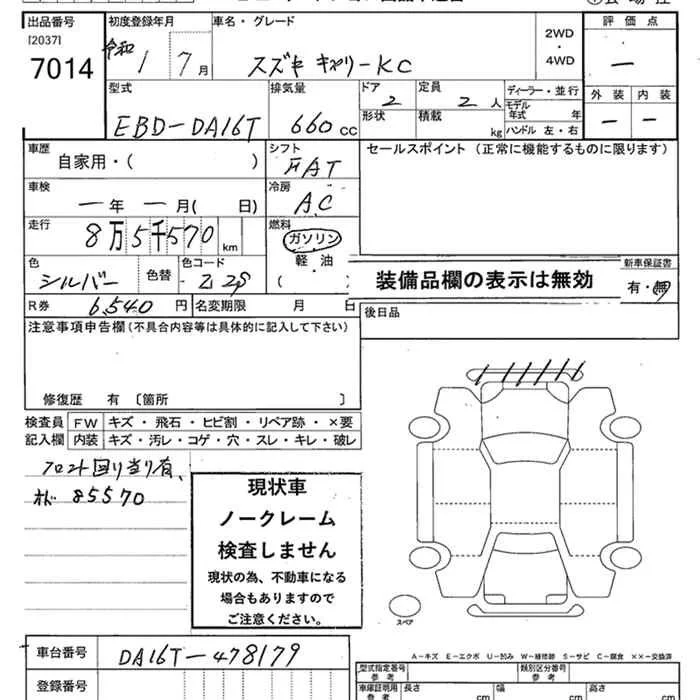 出品番号 初度登録年月 車名・グレード 2WD ・ 4WD 評価点
[2037]
7014 令和 1 7月 スズキ キャリーKC ー
型式 排気量 ドア 定員 ディーラー・並行 外装 内装
EBD-DA16T 660cc 2 2人 モデル年式 年 ー ー
形状 積載 kg ハンドル 左・右
車歴 シフト セールスポイント (正常に機能するものに限ります)
自家用・( ) FAT
車検 冷房
ー年 ー月( 日) AC
走行 燃料
8万5千570km ガソリン
色 色替 色コード 軽油 装備品欄の表示は無効 新車保証書
シルバー Z2S ( 有・無
R券 6,540円 名変期限 月 日 後日品
注意事項申告欄(不具合内容等は具体的に記入して下さい)
修復歴 有〔箇所 〕
検査員 FW キズ・飛石・ヒビ割・リペア跡・×要
記入欄 内装 キズ・汚レ・コゲ・穴・スレ・キレ・破レ
フロント回り当り有、
オド 85570
現状車
ノークレーム
検査しません
現状の為、不動車になる
場合もありますので
ご注意ください。
スペア
A-キズ E-エクボ U-凹み W-補修跡 S-サビ C-腐食 ××-交換済
車台番号 DA16T-478179
型式指定番号 参考 類別区分番号 参考
登録番号 車庫証明用 参考 長さ cm 幅 cm 高さ cm